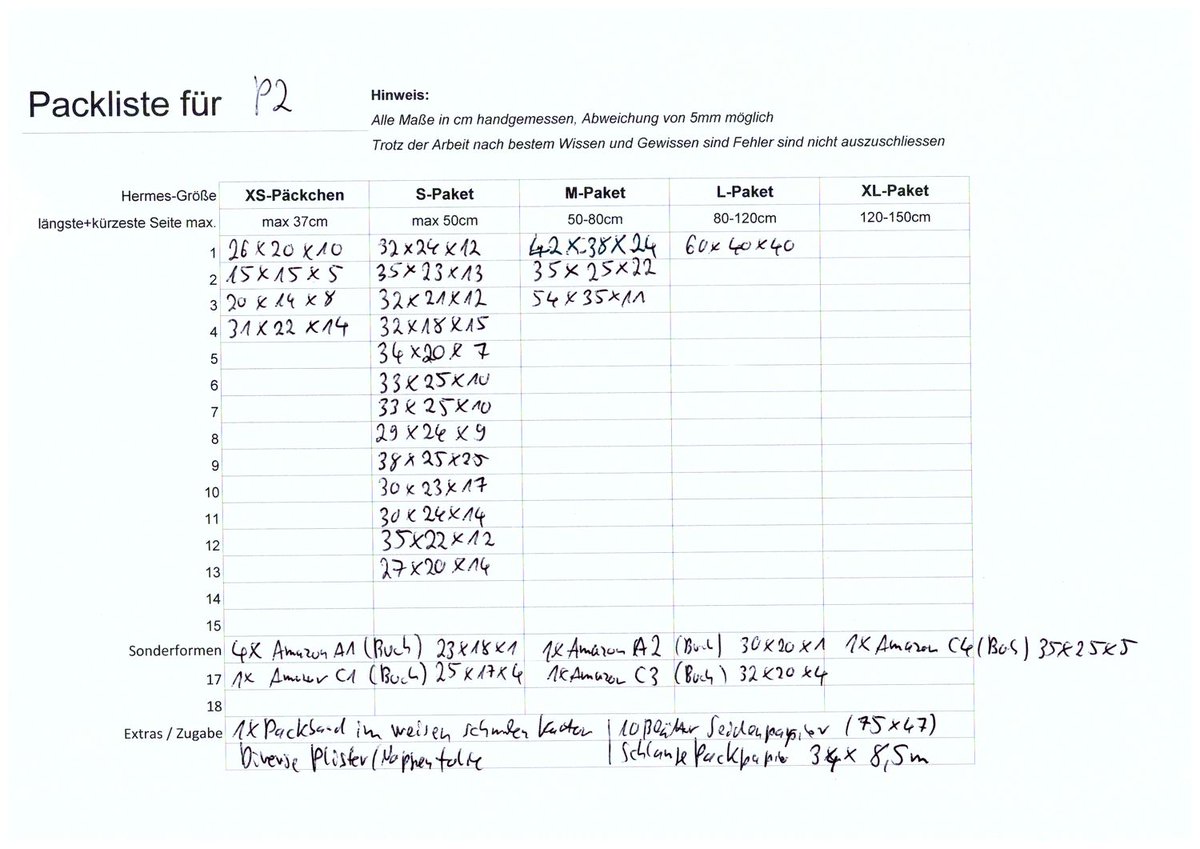 Packliste für P2
Hinweis:
Alle Maße in cm handgemessen, Abweichung von 5mm möglich
Trotz der Arbeit nach bestem Wissen und Gewissen sind Fehler sind nicht auszuschliessen
Hermes-Größe XS-Päckchen S-Paket M-Paket L-Paket XL-Paket
längste+kürzeste Seite max. max 37cm max 50cm 50-80cm 80-120cm 120-150cm
1 26 x 20 x 10 32x24 x 12 42 x 38 x 24 60 x 40 x 40
2 15 x 15 x 5 35 x 23 x 13 35 x 25 x 22
3 20 x 14 x 8 32 x 21 x 12 54 x 35 x 11
4 31 x 22 x 14 32 x 18 x 15
5 34 x 20 x 7
6 33 x 25 x 10
7 33 x 25 x 10
8 29 x 24 x 9
9 38 x 25 x 25
10 30 x 23 x 17
11 30 x 24 x 14
12 35 x 22 x 12
13 27 x 20 x 14
14
15
Sonderformen 4x Amazon A1 (Buch) 23 x 18 x 1 1x Amazon A2 (Buch) 30 x 20 x 1 1x Amazon C4 (Buch) 35 x 25 x 5
17 1x C1 (Buch) 25 x 17 x 4 1x Amazon C3 (Buch) 32 x 20 x 4
18
Extras / Zugabe 1x Packband im weisen Karton | 10 Blätter Seidenpapier (75 x 47)
Diverse | Packpapier 8,5m